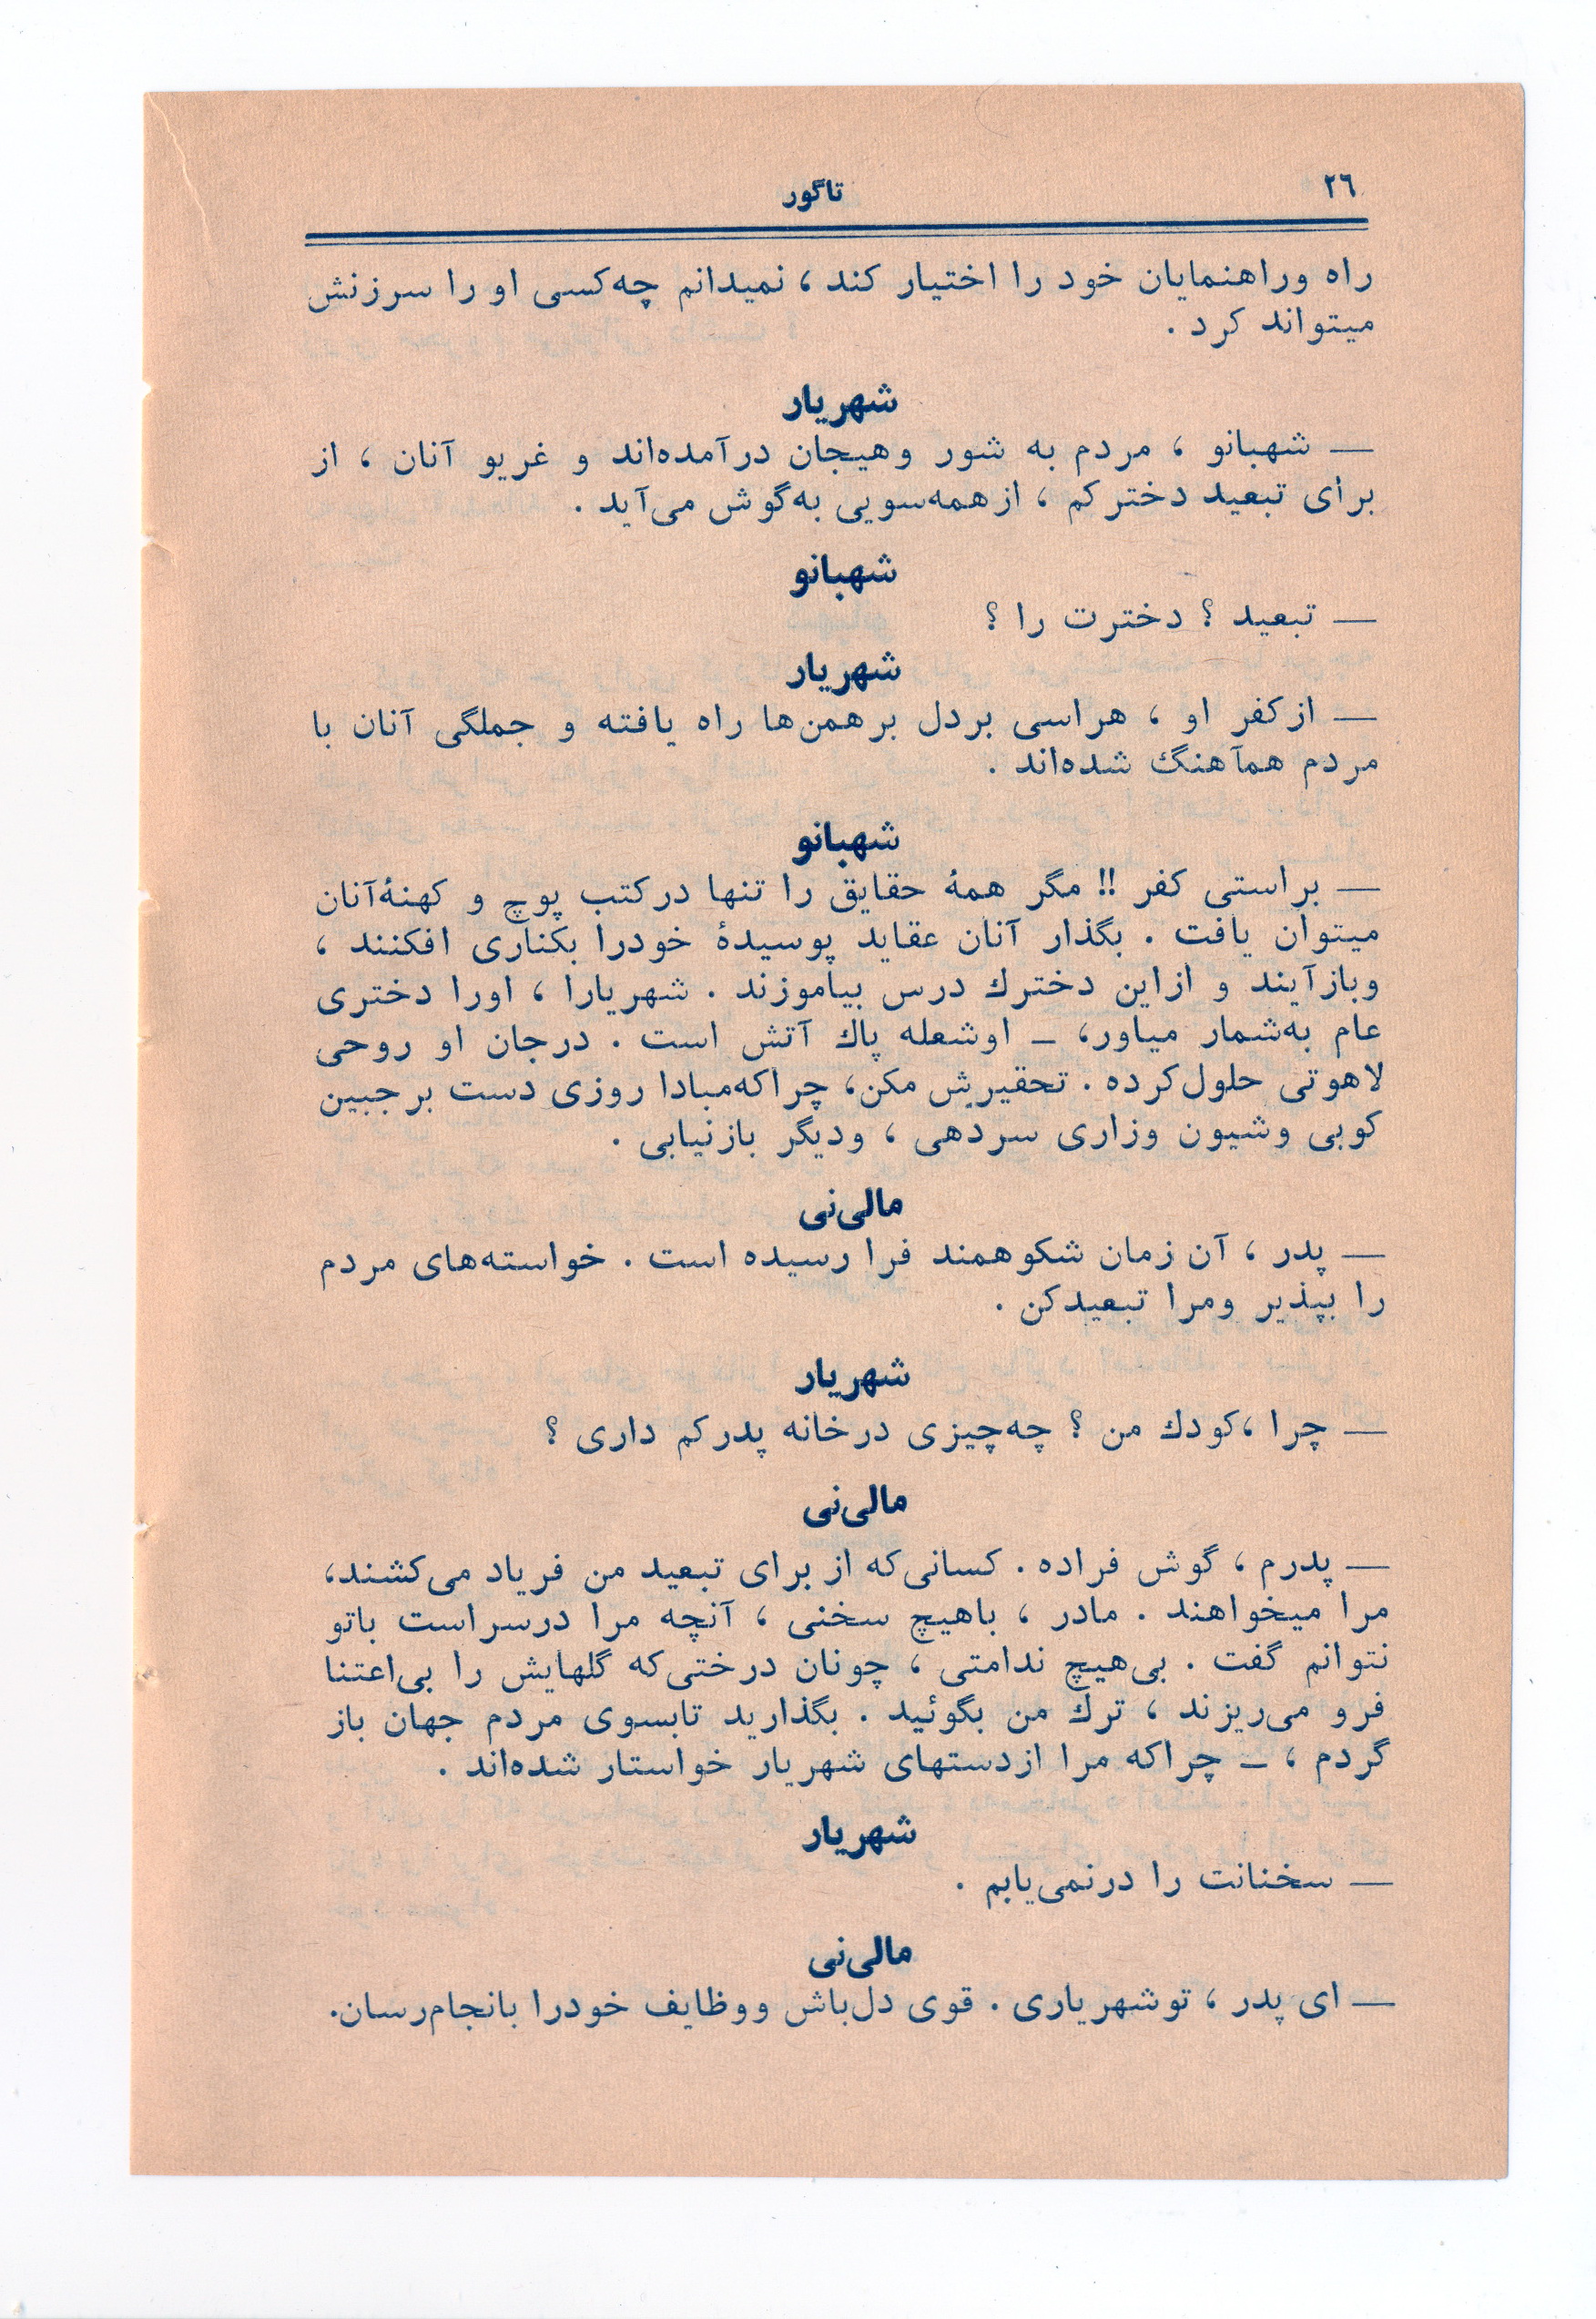 ۲۶
تاگور
راه وراهنمایان خود را اختیار کند ، نمیدانم چه‌کسی او را سرزنش
میتواند کرد .
شهریار
— شهبانو ، مردم به شور وهیجان درآمده‌اند و غریو آنان ، از
برای تبعید دخترکم ، ازهمه‌سویی به‌گوش می‌آید .
شهبانو
— تبعید ؟ دخترت را ؟
شهریار
— ازکفر او ، هراسی بردل برهمن‌ها راه یافته و جملگی آنان با
مردم همآهنگ شده‌اند .
شهبانو
— براستی کفر !! مگر همهٔ حقایق را تنها درکتب پوچ و کهنهٔ‌آنان
میتوان یافت . بگذار آنان عقاید پوسیدهٔ خودرا بکناری افکنند ،
وبازآیند و ازاین دخترك درس بیاموزند . شهریارا ، اورا دختری
عام به‌شمار میاور، – اوشعله پاك آتش است . درجان او روحی
لاهوتی حلول‌کرده . تحقیرش مکن، چراکه‌مبادا روزی دست برجبین
کوبی وشیون وزاری سردهی ، ودیگر بازنیابی .
مالی‌نی
— پدر ، آن زمان شکوهمند فرا رسیده است . خواسته‌های مردم
را بپذیر ومرا تبعیدکن .
شهریار
— چرا ،کودك من ؟ چه‌چیزی درخانه پدرکم داری ؟
مالی‌نی
— پدرم ، گوش فراده . کسانی‌که از برای تبعید من فریاد می‌کشند،
مرا میخواهند . مادر ، باهیچ سخنی ، آنچه مرا درسراست باتو
نتوانم گفت . بی‌هیچ ندامتی ، چونان درختی‌که گلهایش را بی‌اعتنا
فرو می‌ریزند ، ترك من بگوئید . بگذارید تابسوی مردم جهان باز
گردم ، – چراکه مرا ازدستهای شهریار خواستار شده‌اند .
شهریار
— سخنانت را درنمی‌یابم .
مالی‌نی
— ای پدر ، توشهریاری . قوی دل‌باش ووظایف خودرا بانجام‌رسان.